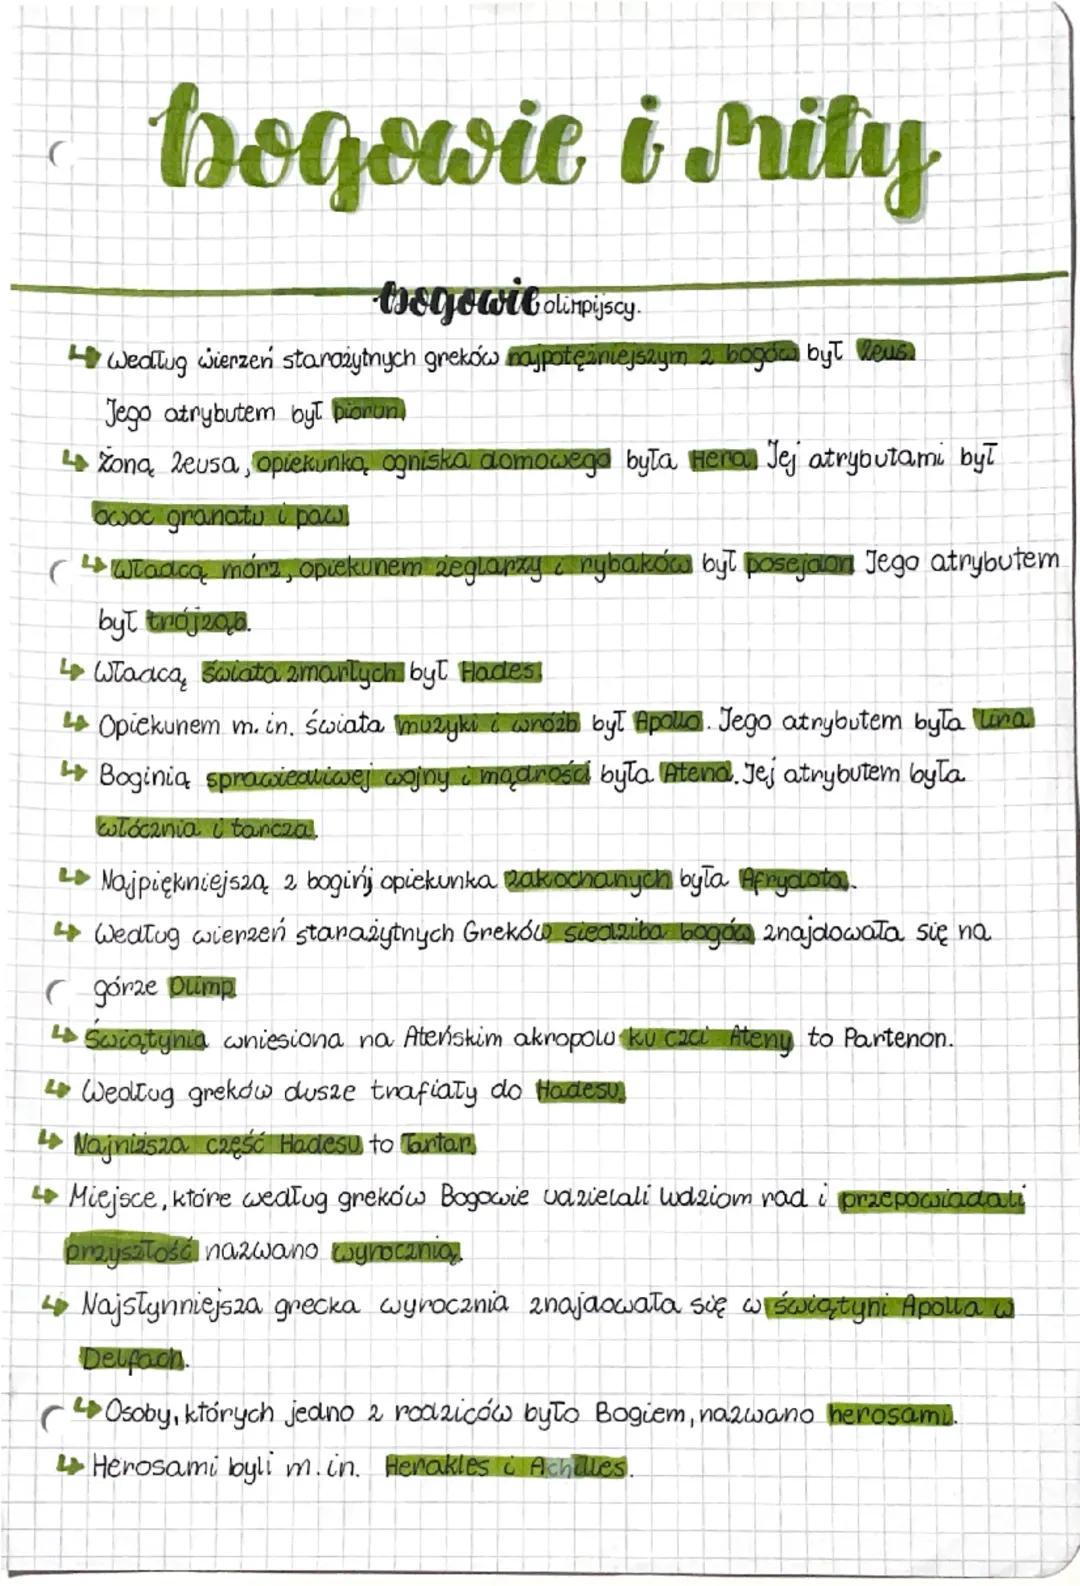 bogowie i mity
bogowie olimpijscy.
↳ Według wierzeń starożytnych greków najpotężniejszym z bogów był Zeus.
Jego atrybutem był piorun.
↳ Żoną Zeusa, opiekunką ogniska domowego była Hera. Jej atrybutami był
owoc granatu i paw.
↳ Władcą mórz, opiekunem żeglarzy i rybaków był posejdon Jego atrybutem
był trójząb.
↳ Władcą świata zmarłych był Hades.
↳ Opiekunem m.in. świata muzyki i wróżb był Apollo. Jego atrybutem była lira
↳ Boginią sprawiedliwej wojny i mądrości była Atena. Jej atrybutem była
włócznia i tarcza.
↳ Najpiękniejszą z bogiń, opiekunka zakochanych była Afrydota.
↳ Według wierzeń starożytnych Greków siedziba bogów znajdowała się na
górze Olimp
↳ Świątynia wniesiona na Ateńskim akropolu ku czci Ateny to Partenon.
↳ Według greków dusze trafiały do Hadesu.
↳ Najniższa część Hadesu to Tartar.
↳ Miejsce, które według greków Bogowie udzielali ludziom rad i przepowiadali
przyszłość nazwano wyrocznią.
↳ Najsłynniejsza grecka wyrocznia znajdowała się w świątyni Apolla w
Delfach.
↳ Osoby, których jedno z rodziców było Bogiem, nazwano herosami.
↳ Herosami byli m.in. Herakles i Achilles.